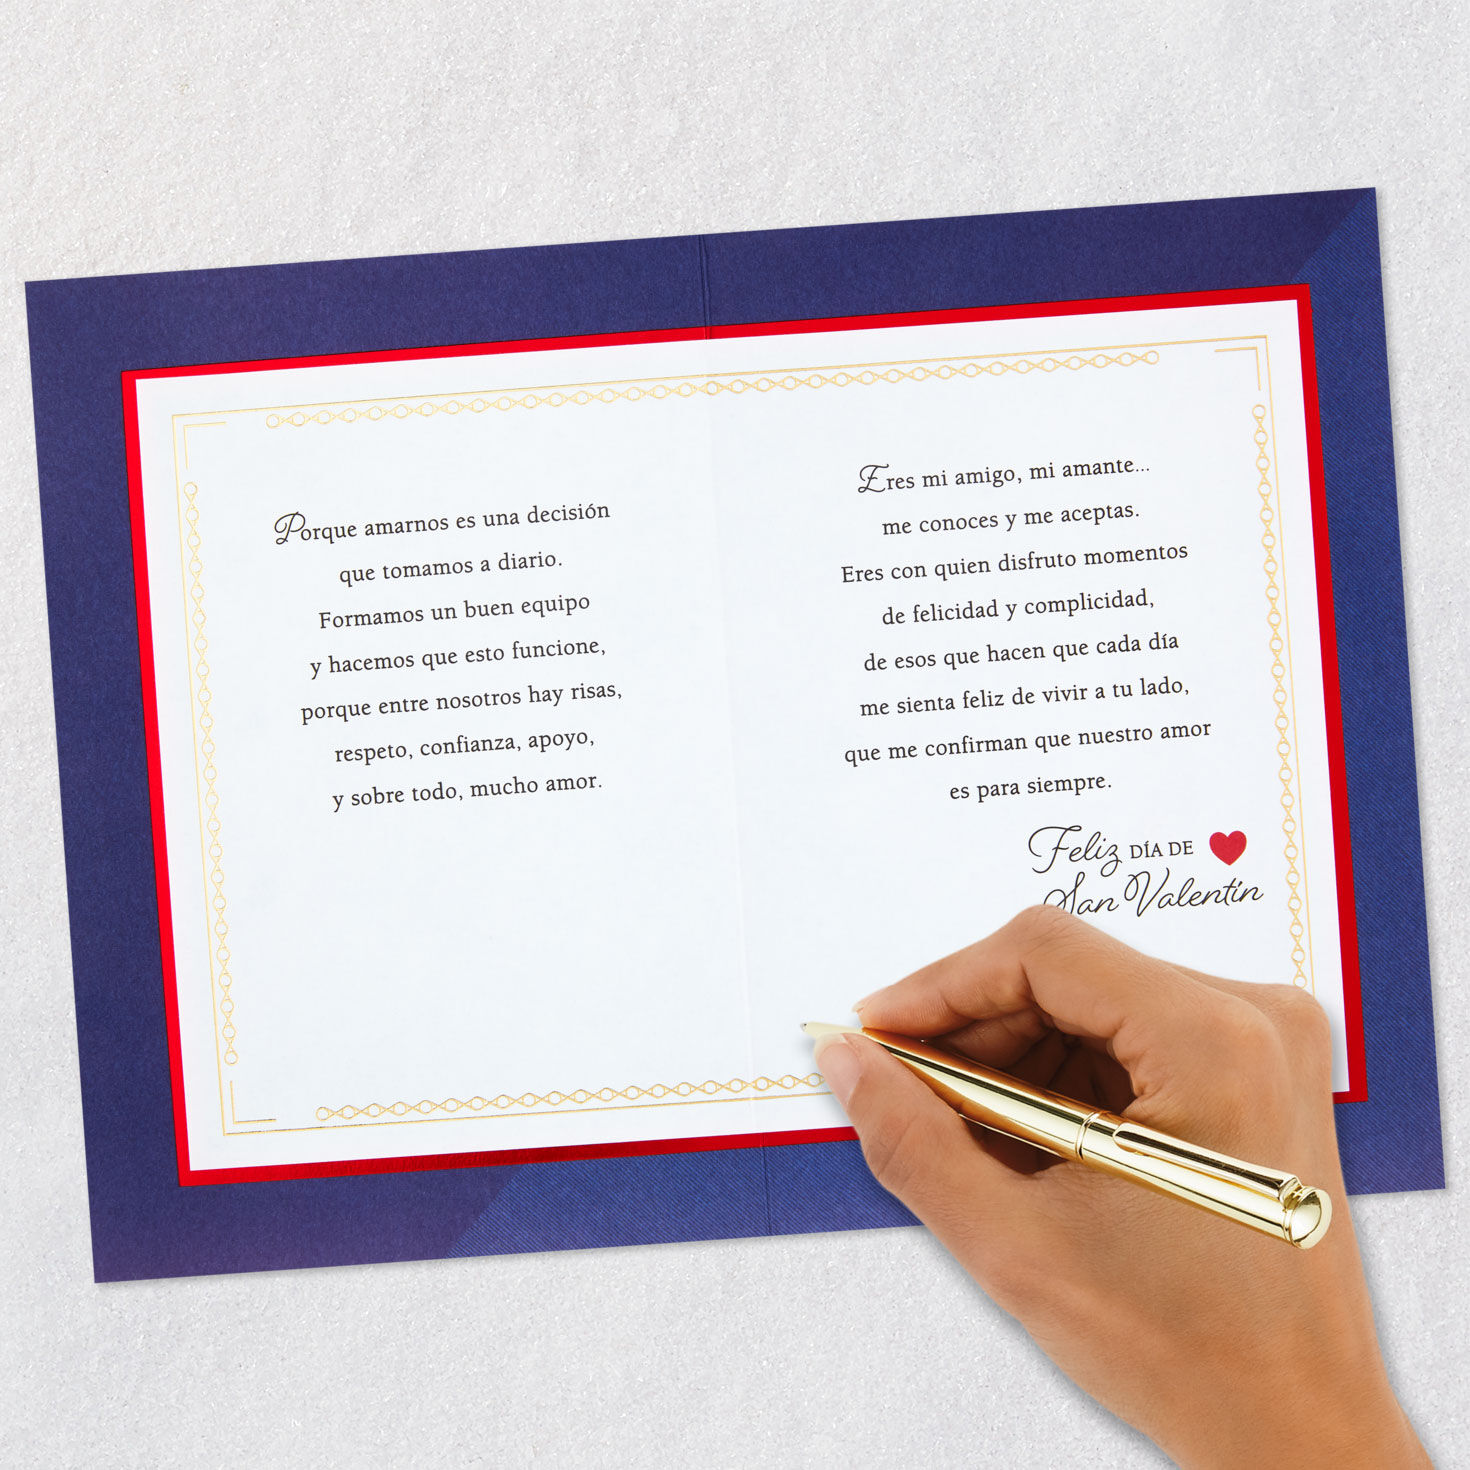 Porque amarnos es una decisión
que tomamos a diario.
Formamos un buen equipo
y hacemos que esto funcione,
porque entre nosotros hay risas,
respeto, confianza, apoyo,
y sobre todo, mucho amor.
Eres mi amigo, mi amante...
me conoces y me aceptas.
Eres con quien disfruto momentos
de felicidad y complicidad,
de esos que hacen que cada día
me sienta feliz de vivir a tu lado,
que me confirman que nuestro amor
es para siempre.
Feliz DÍA DE
San Valentín